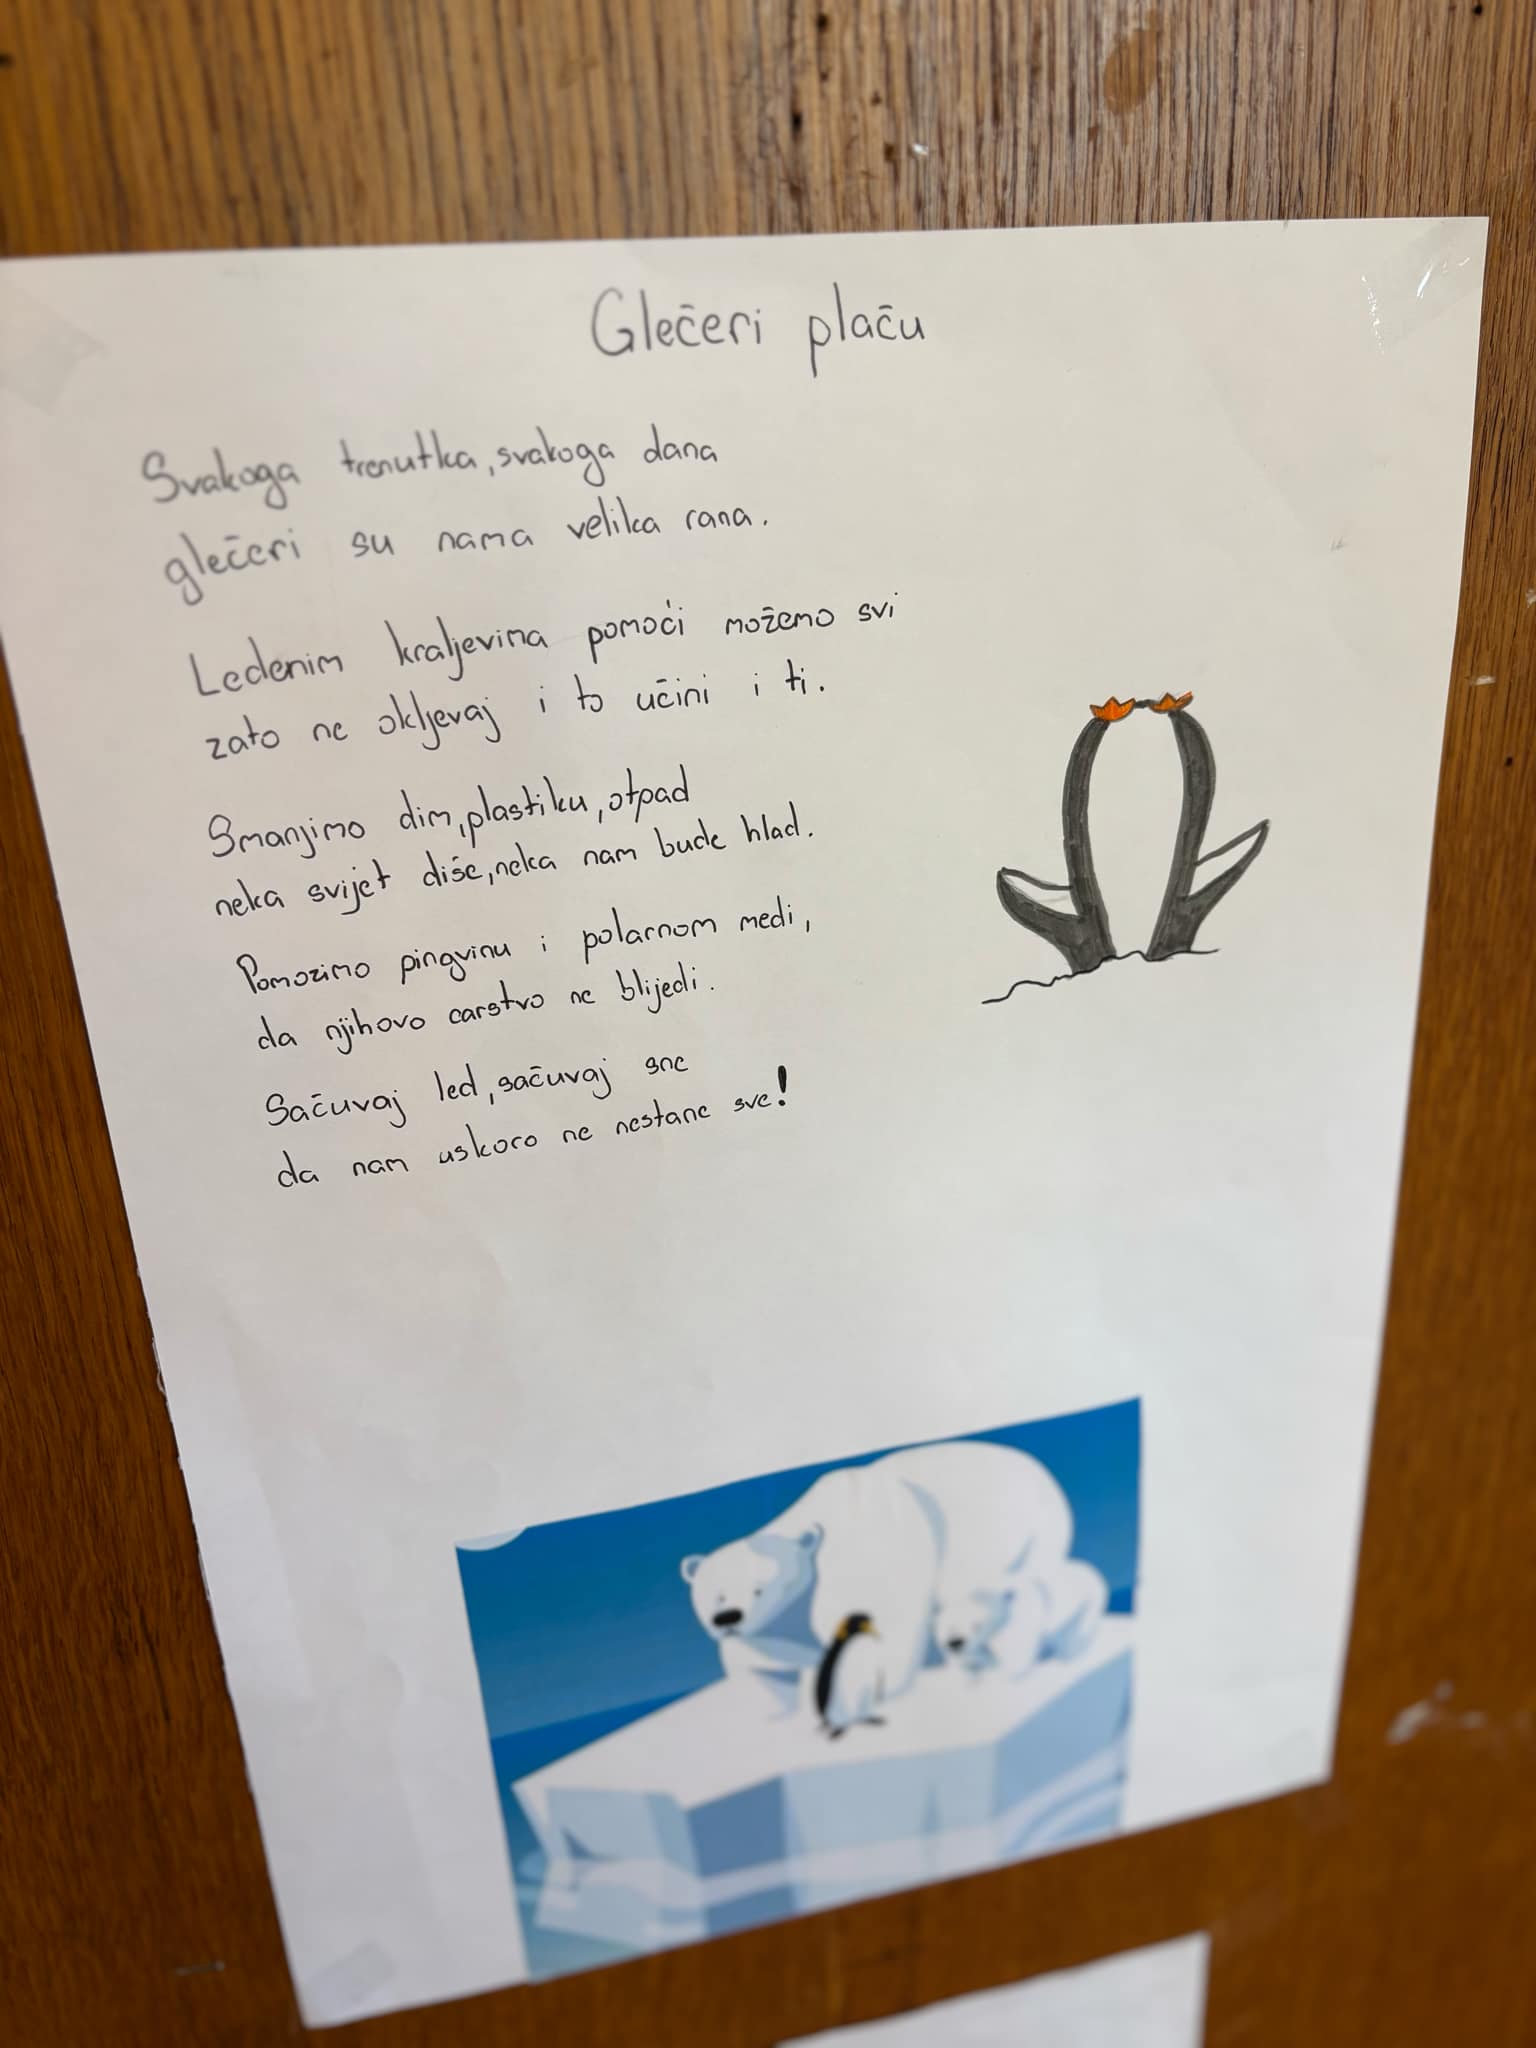 Glečeri plaču
Svakoga trenutka, svakoga dana
glečeri su nama velika rana.
Ledenim kraljevima pomoći možemo svi
zato ne okljevaj i to učini i ti.
Smanjimo dim, plastiku, otpad
neka svijet diše, neka nam bude hlad.
Pomozimo pingvinu i polarnom medi,
da njihovo carstvo ne blijedi.
Sačuvaj led, sačuvaj sne
da nam uskoro ne nestane sve!